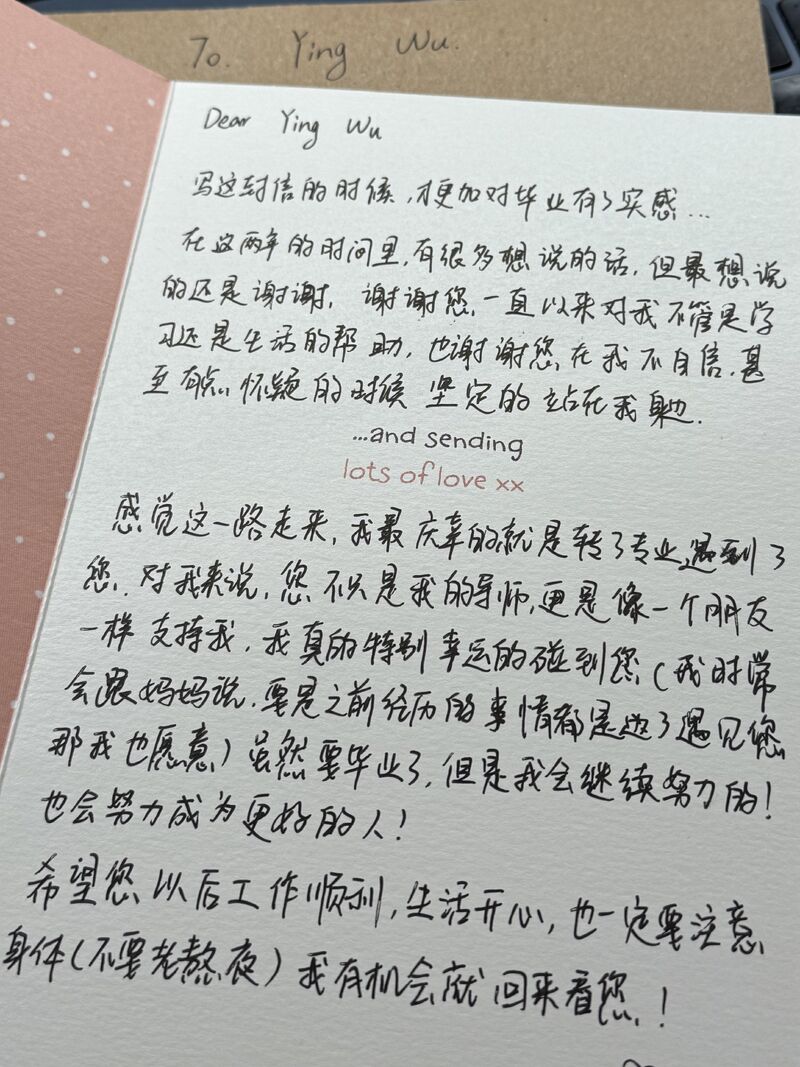 To. Ying Wu.
Dear Ying Wu
写这封信的时候，才更加对毕业有了实感...
在这两年的时间里，有很多想说的话，但最想说
的还是谢谢，谢谢您，一直以来对我不管是学
习还是生活的帮助，也谢谢您在我不自信，甚
至有点怀疑的时候坚定的站在我身边.
...and sending
lots of love xx
感觉这一路走来，我最庆幸的就是转了专业，遇到了
您. 对我来说，您不只是我的导师，更是像一个朋友
一样支持我，我真的特别幸运的碰到您（我时常
会跟妈妈说，要是之前经历的事情都是为了遇见您
那我也愿意）虽然要毕业了，但是我会继续努力的！
也会努力成为更好的人！
希望您以后工作顺利，生活开心，也一定要注意
身体（不要老熬夜）我有机会就回来看您！